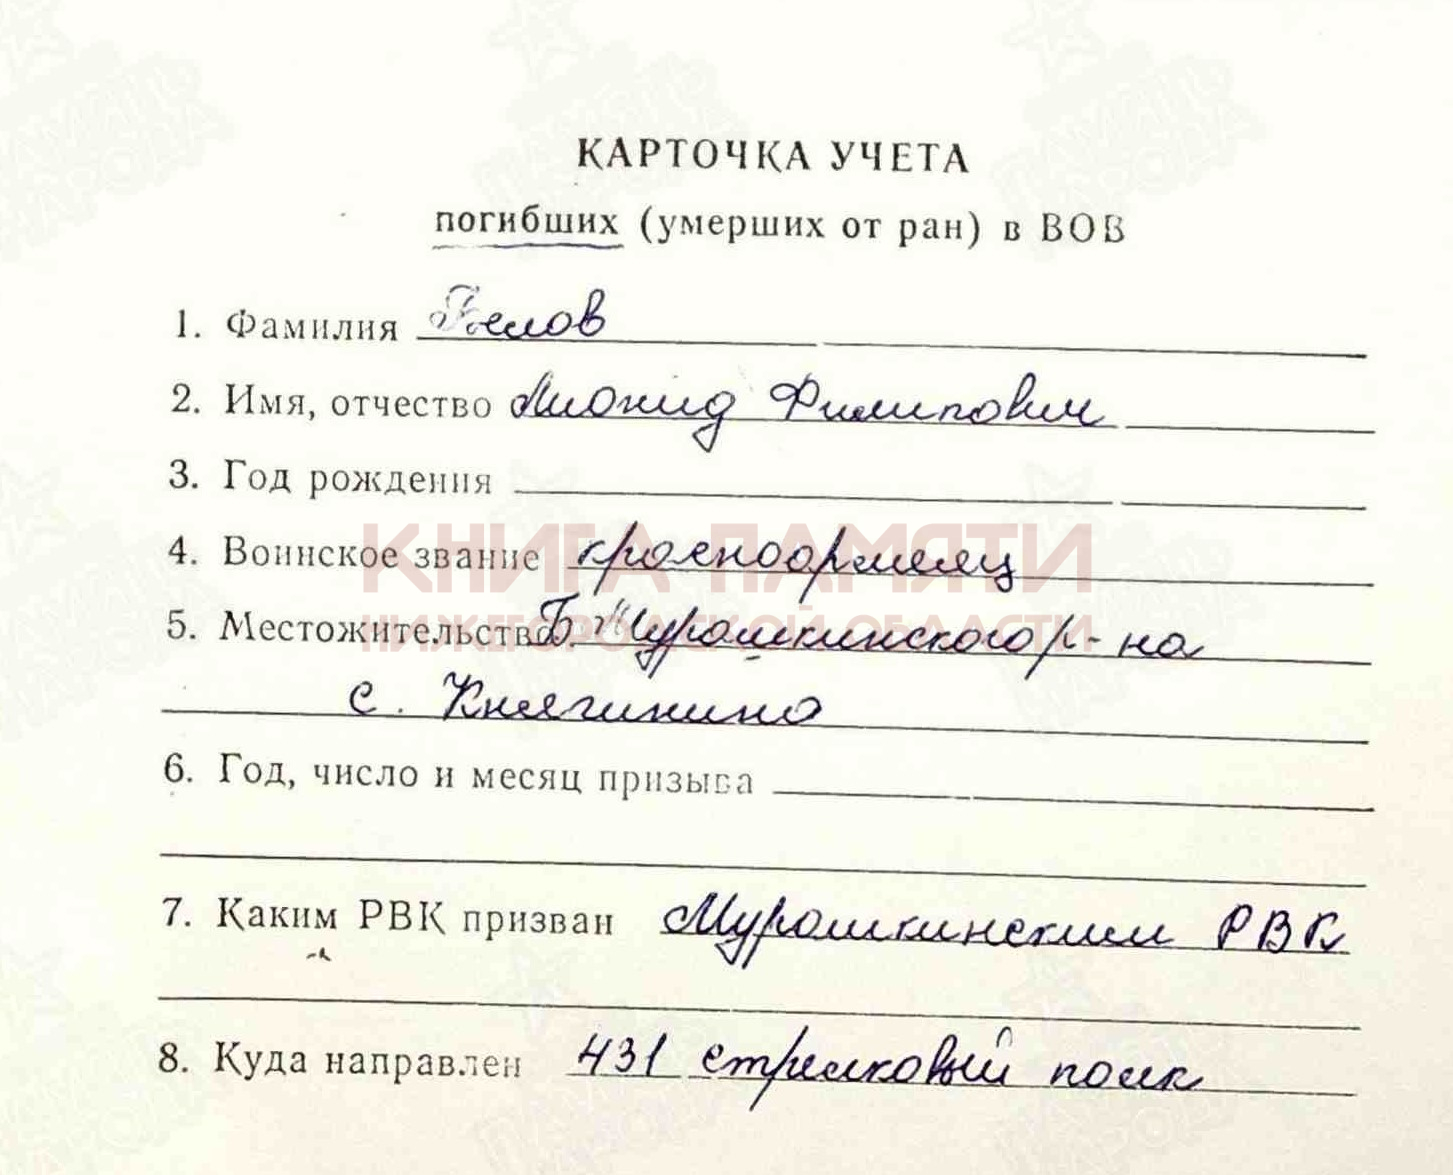 КАРТОЧКА УЧЕТА
погибших (умерших от ран) в ВОВ
1. Фамилия Белов
2. Имя, отчество Леонид Филипович
3. Год рождения
КНИГА ПАМЯТИ
4. Воинское звание красноармеец
НИЖЕГОРОДСКОЙ ОБЛАСТИ
5. Местожительство Б Мурашкинского р-на
с. Княгинино
6. Год, число и месяц призыва
7. Каким РВК призван Мурашкинским РВК
8. Куда направлен 431 стрелковый полк